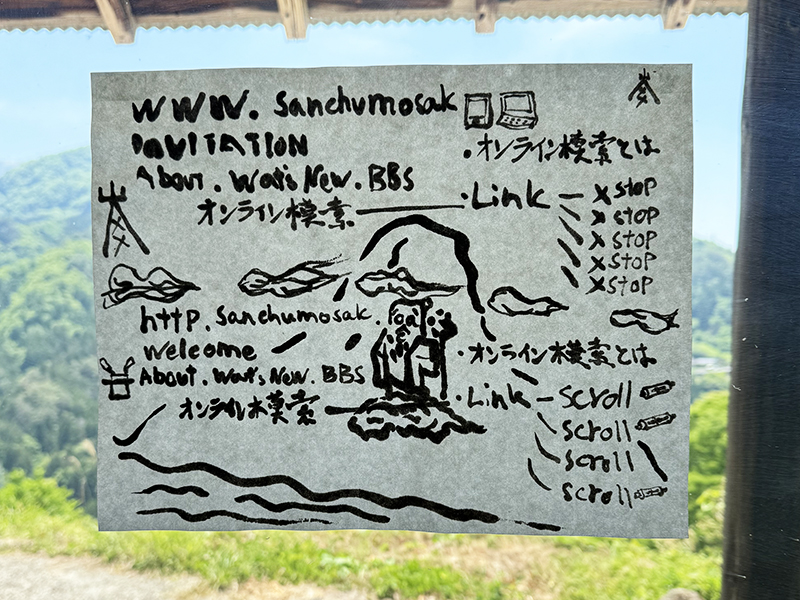 WWW. Sanchumosak
INVITATION
About. Wat's New. BBS
オンライン模索
・オンライン模索とは
・Link
x stop
x stop
x stop
x stop
x stop
http. Sanchumosak.
Welcome
About. Wat's New. BBS
オンライン模索
・オンライン模索とは
・Link
scroll
scroll
scroll
scroll